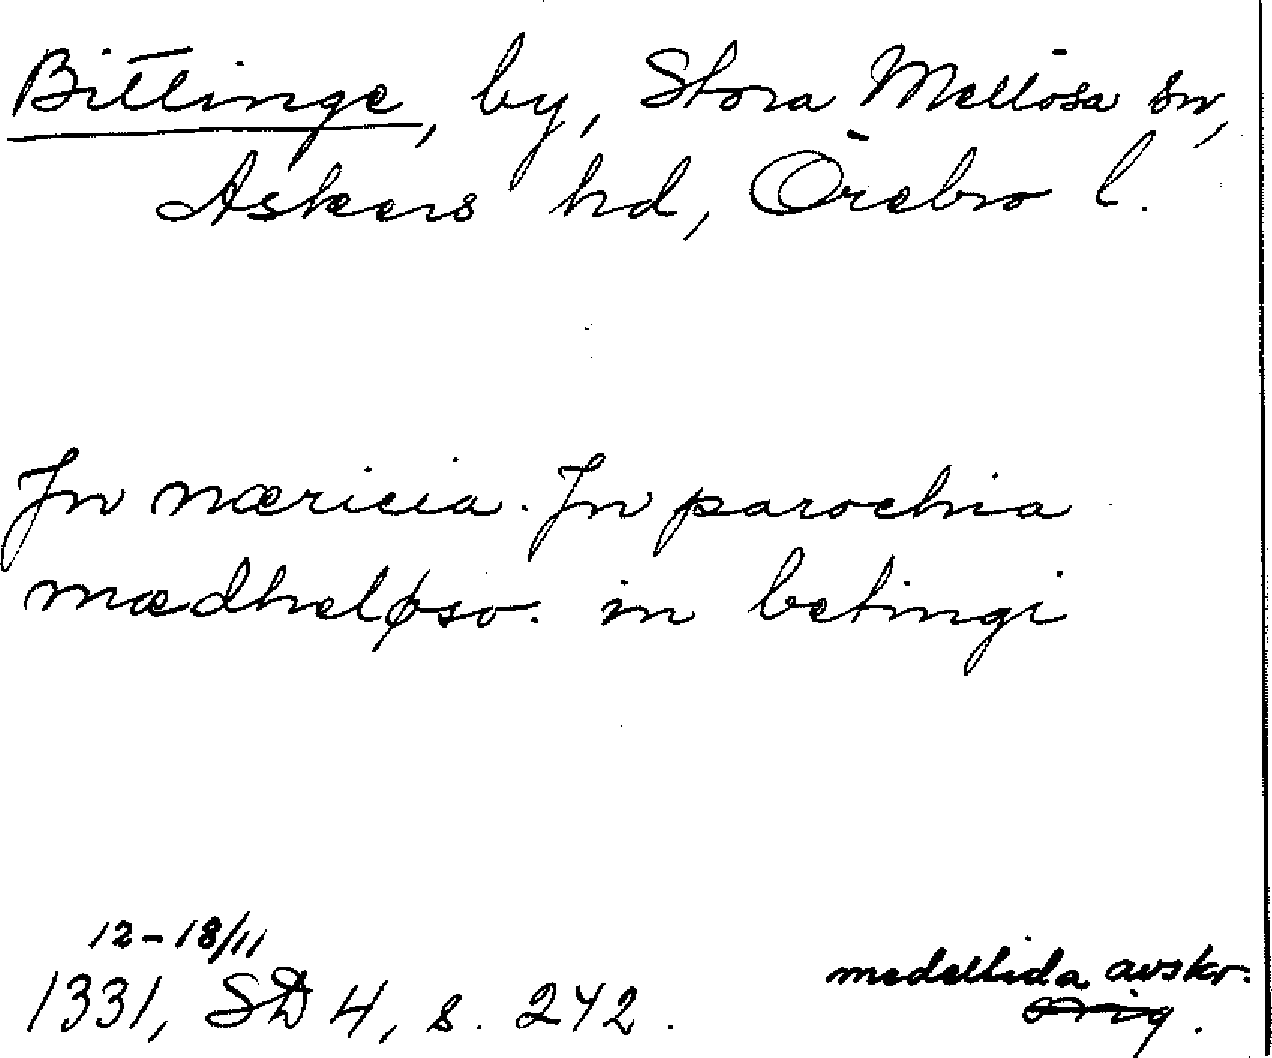 Bittinge, by, Stora Mellösa sn,
Askers hd, Örebro l.
Jn næricia. Jn parochia
mædheløso. in betingi
12-18/11
1331, SD 4, s. 242.
medeltida avskr.
orig.